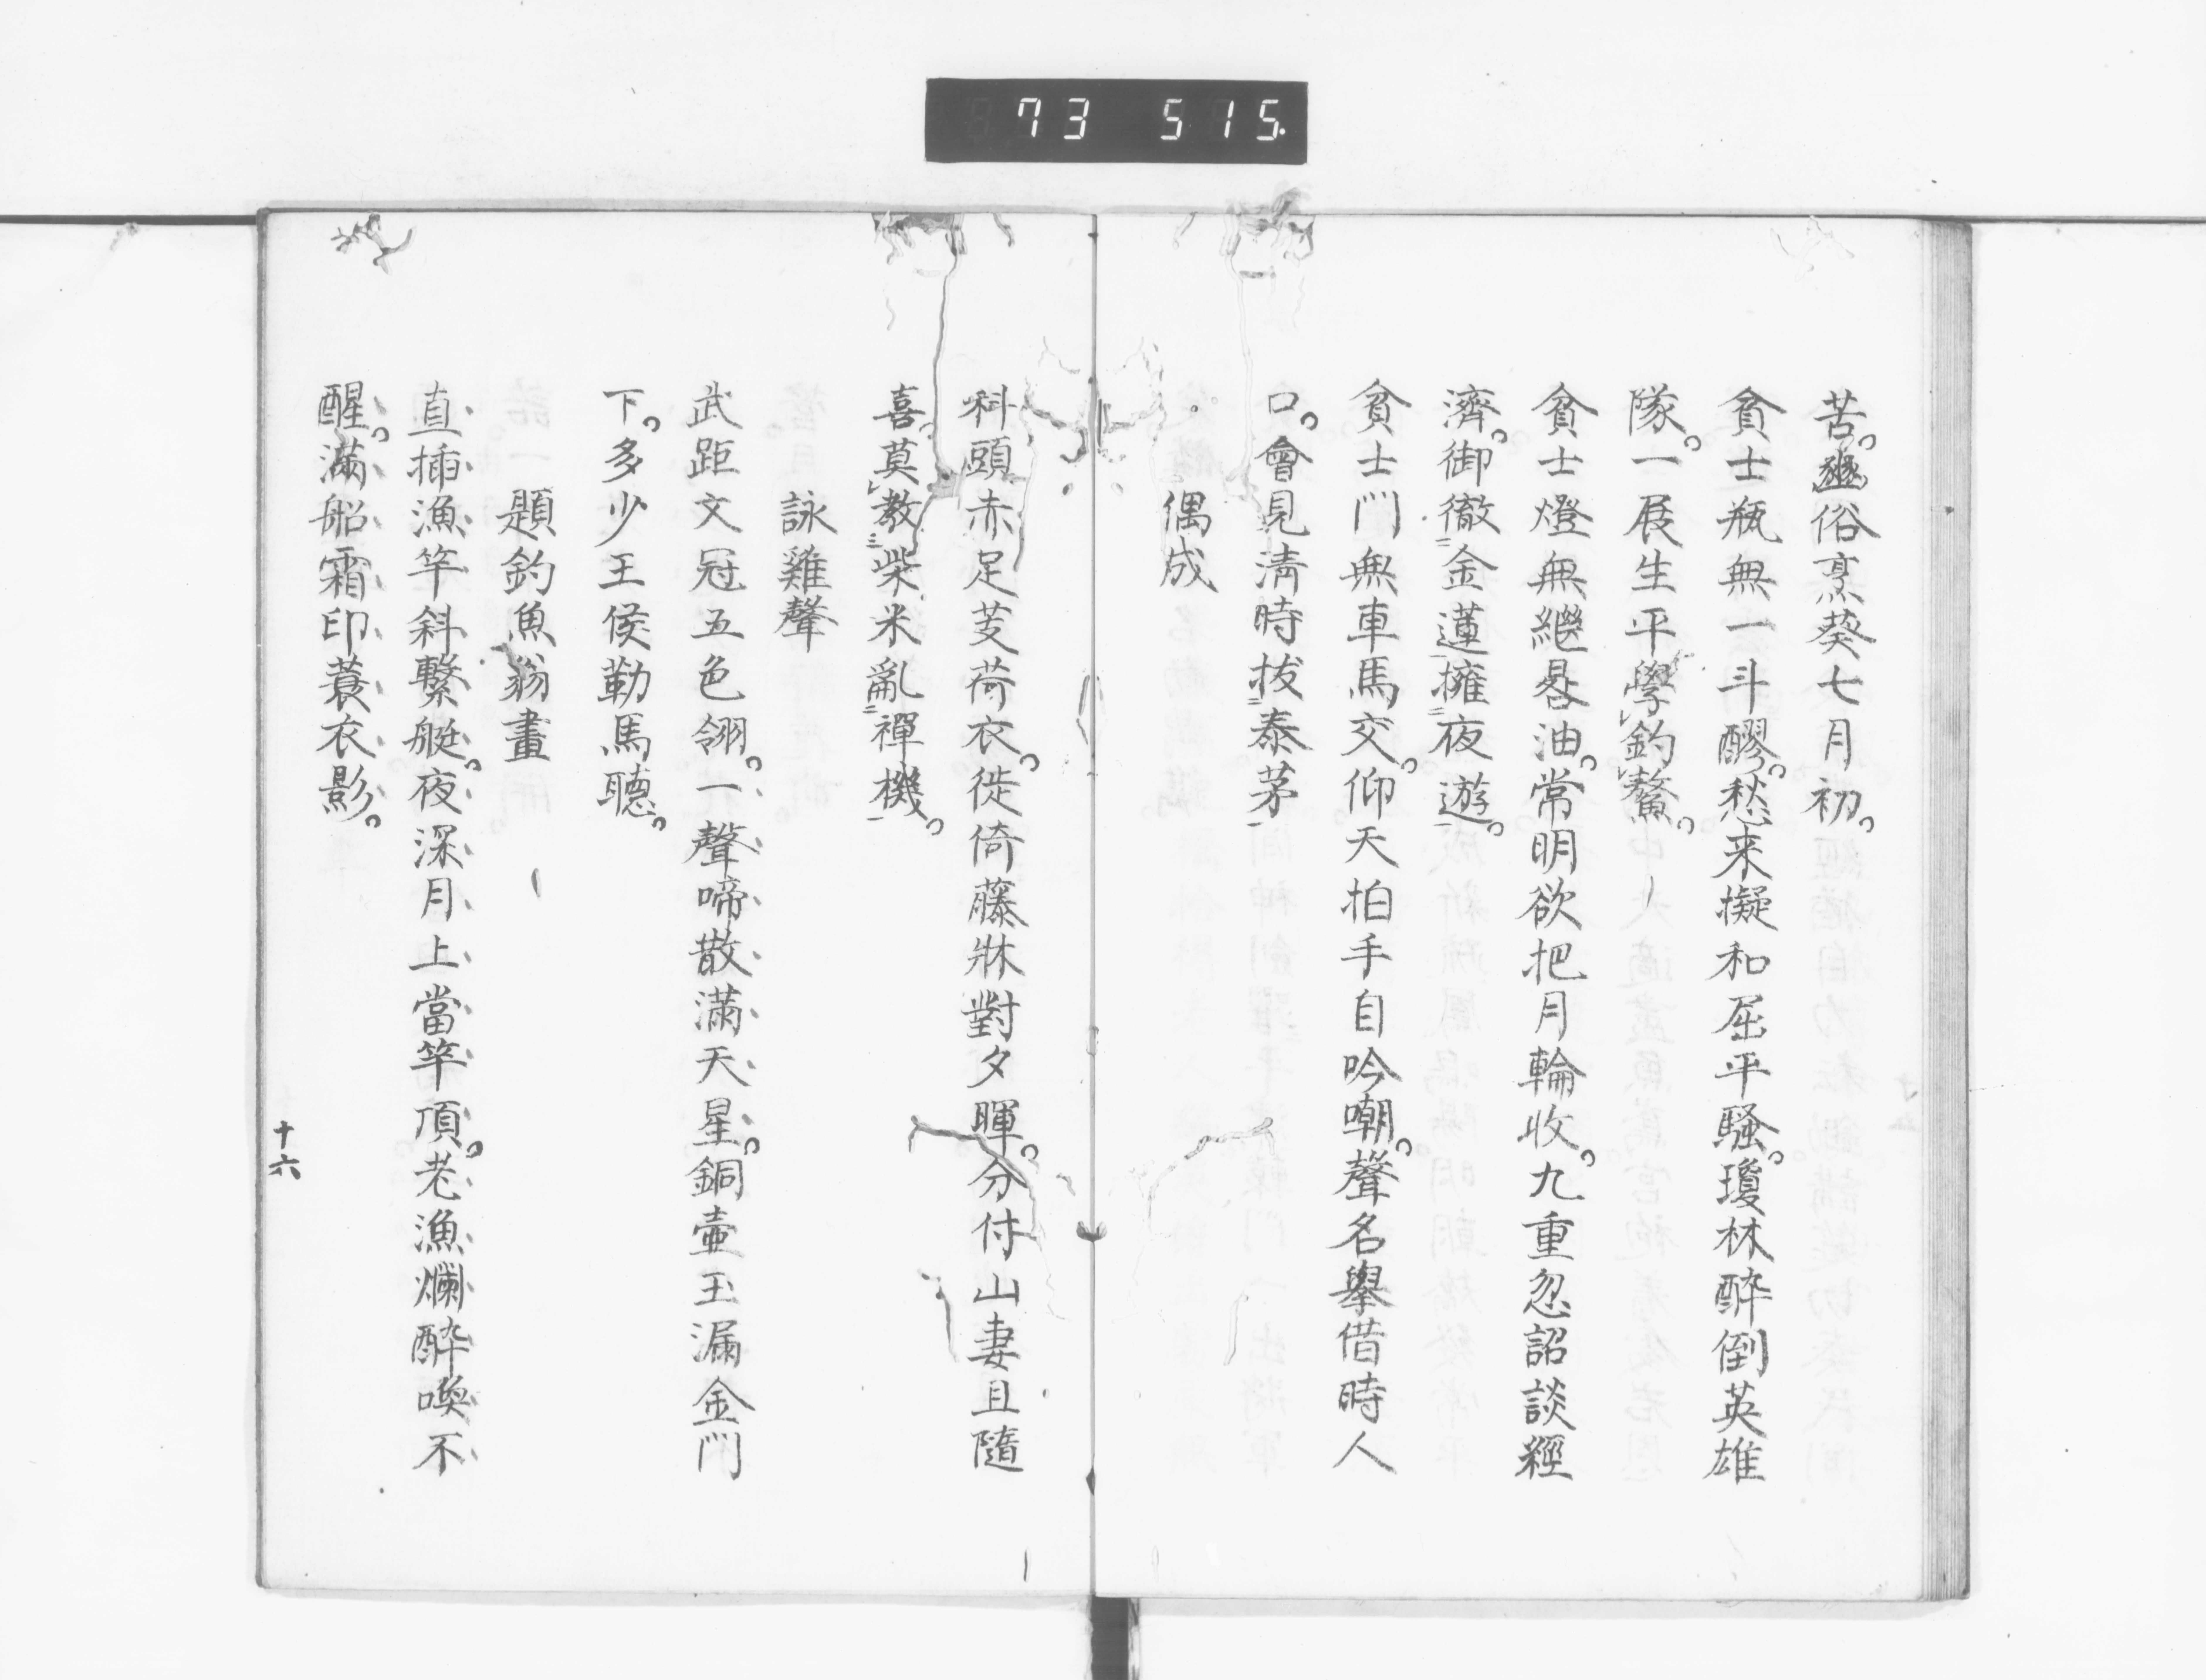 73 515
苦。豳俗烹葵七月初。
貧士瓶無一斗醪。愁来擬和屈平騷。瓊林醉倒英雄
隊。一展生平學釣鰲。
貧士燈無繼晷油。常明欲把月輪收。九重忽詔談經
濟。御徹金蓮擁夜遊。
貧士門無車馬交。仰天拍手自吟嘲。聲名舉借時人
口。會見清時拔泰茅
偶成
科頭赤足芰荷衣。徙倚藤牀對夕暉。分付山妻且隨
喜。莫教柴米亂禪機。
詠雞聲
武距文冠五色翎。一聲啼散滿天星。銅壷玉漏金門
下。多少王侯勒馬聽。
題釣魚翁畫
直插漁竿斜繫艇。夜深月上當竿頂。老漁爛醉喚不
醒。滿船霜印蓑衣影。
十六